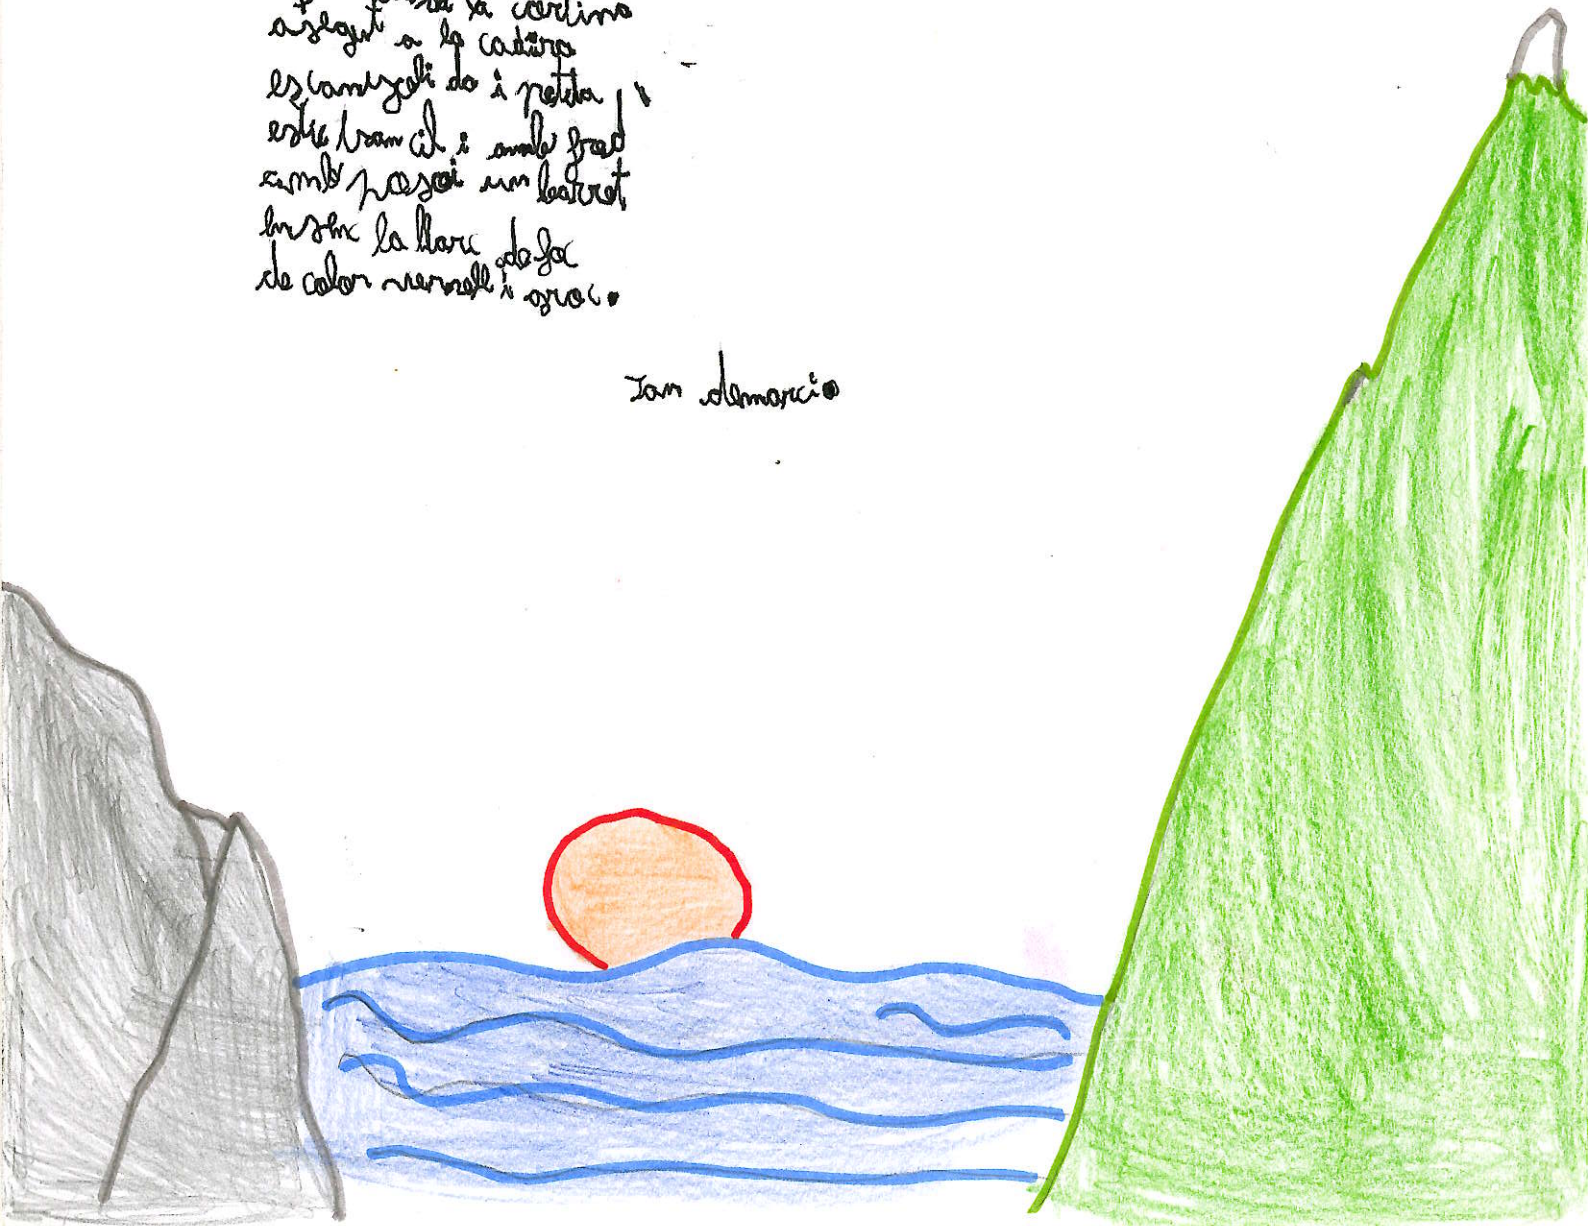 la cortina
asegut a la cadira
escanyoli da i petita
estic trancil i amb fred
amb posai un barret
ensenc la llarc de foc
de color vermell i groc.
Ian demarcio